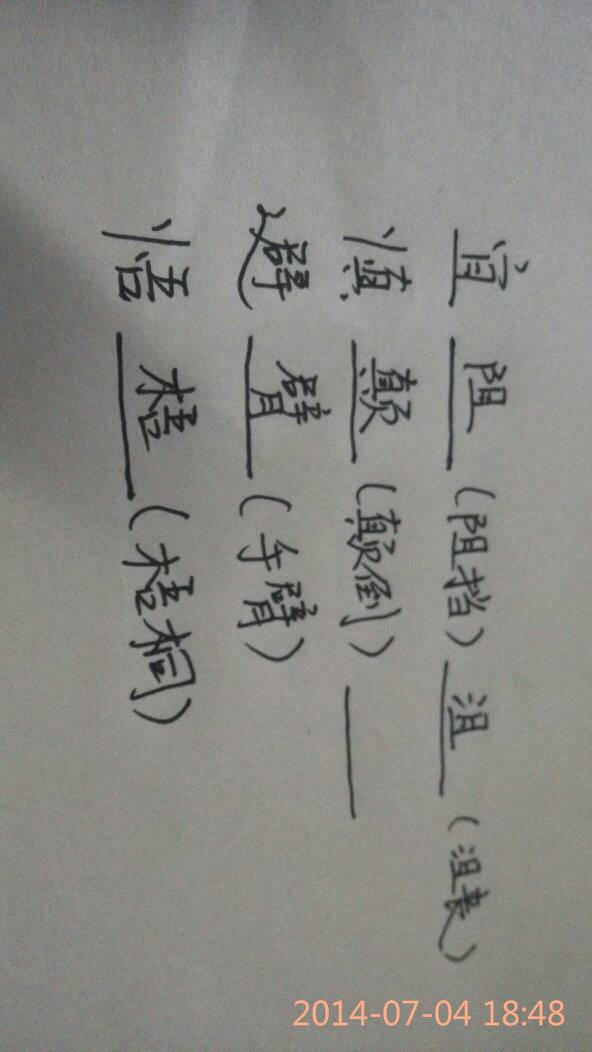 宜 阻 (阻挡) 沮 (沮丧)
慎 颠 (颠倒)
避 臂 (手臂)
悟 梧 (梧桐)
2014-07-04 18:48